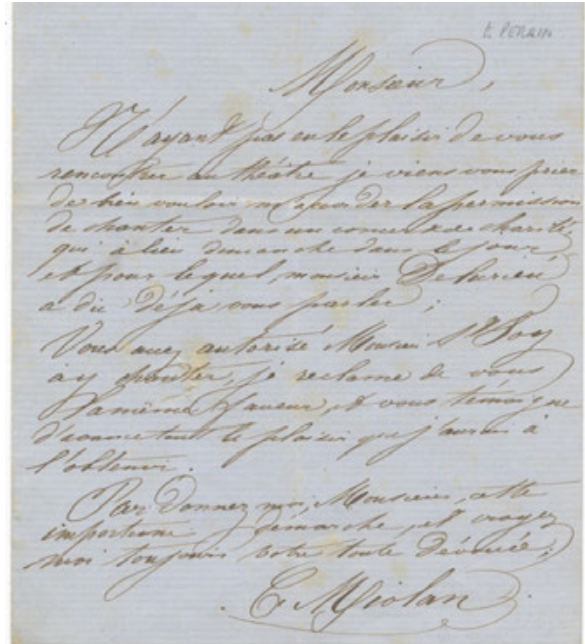 E. PERRIN
Monsieur,
N'ayant pas eu le plaisir de vous
rencontrer au théâtre je viens vous prier
de bien vouloir m'accorder la permission
de chanter dans un concert de charité
qui à lieu dimanche dans le jour
et pour lequel, monsieur
a dû déjà vous parler;
Vous avez autorisé Monsieur Ste Foy
à y chanter, je réclame de vous
la même faveur, & vous témoigne
d'avance tout le plaisir que j'aurais à
l'obtenir.
Pardonnez moi, Monsieur, cette
importune démarche, et croyez
moi toujours votre toute dévouée;
C Miolan